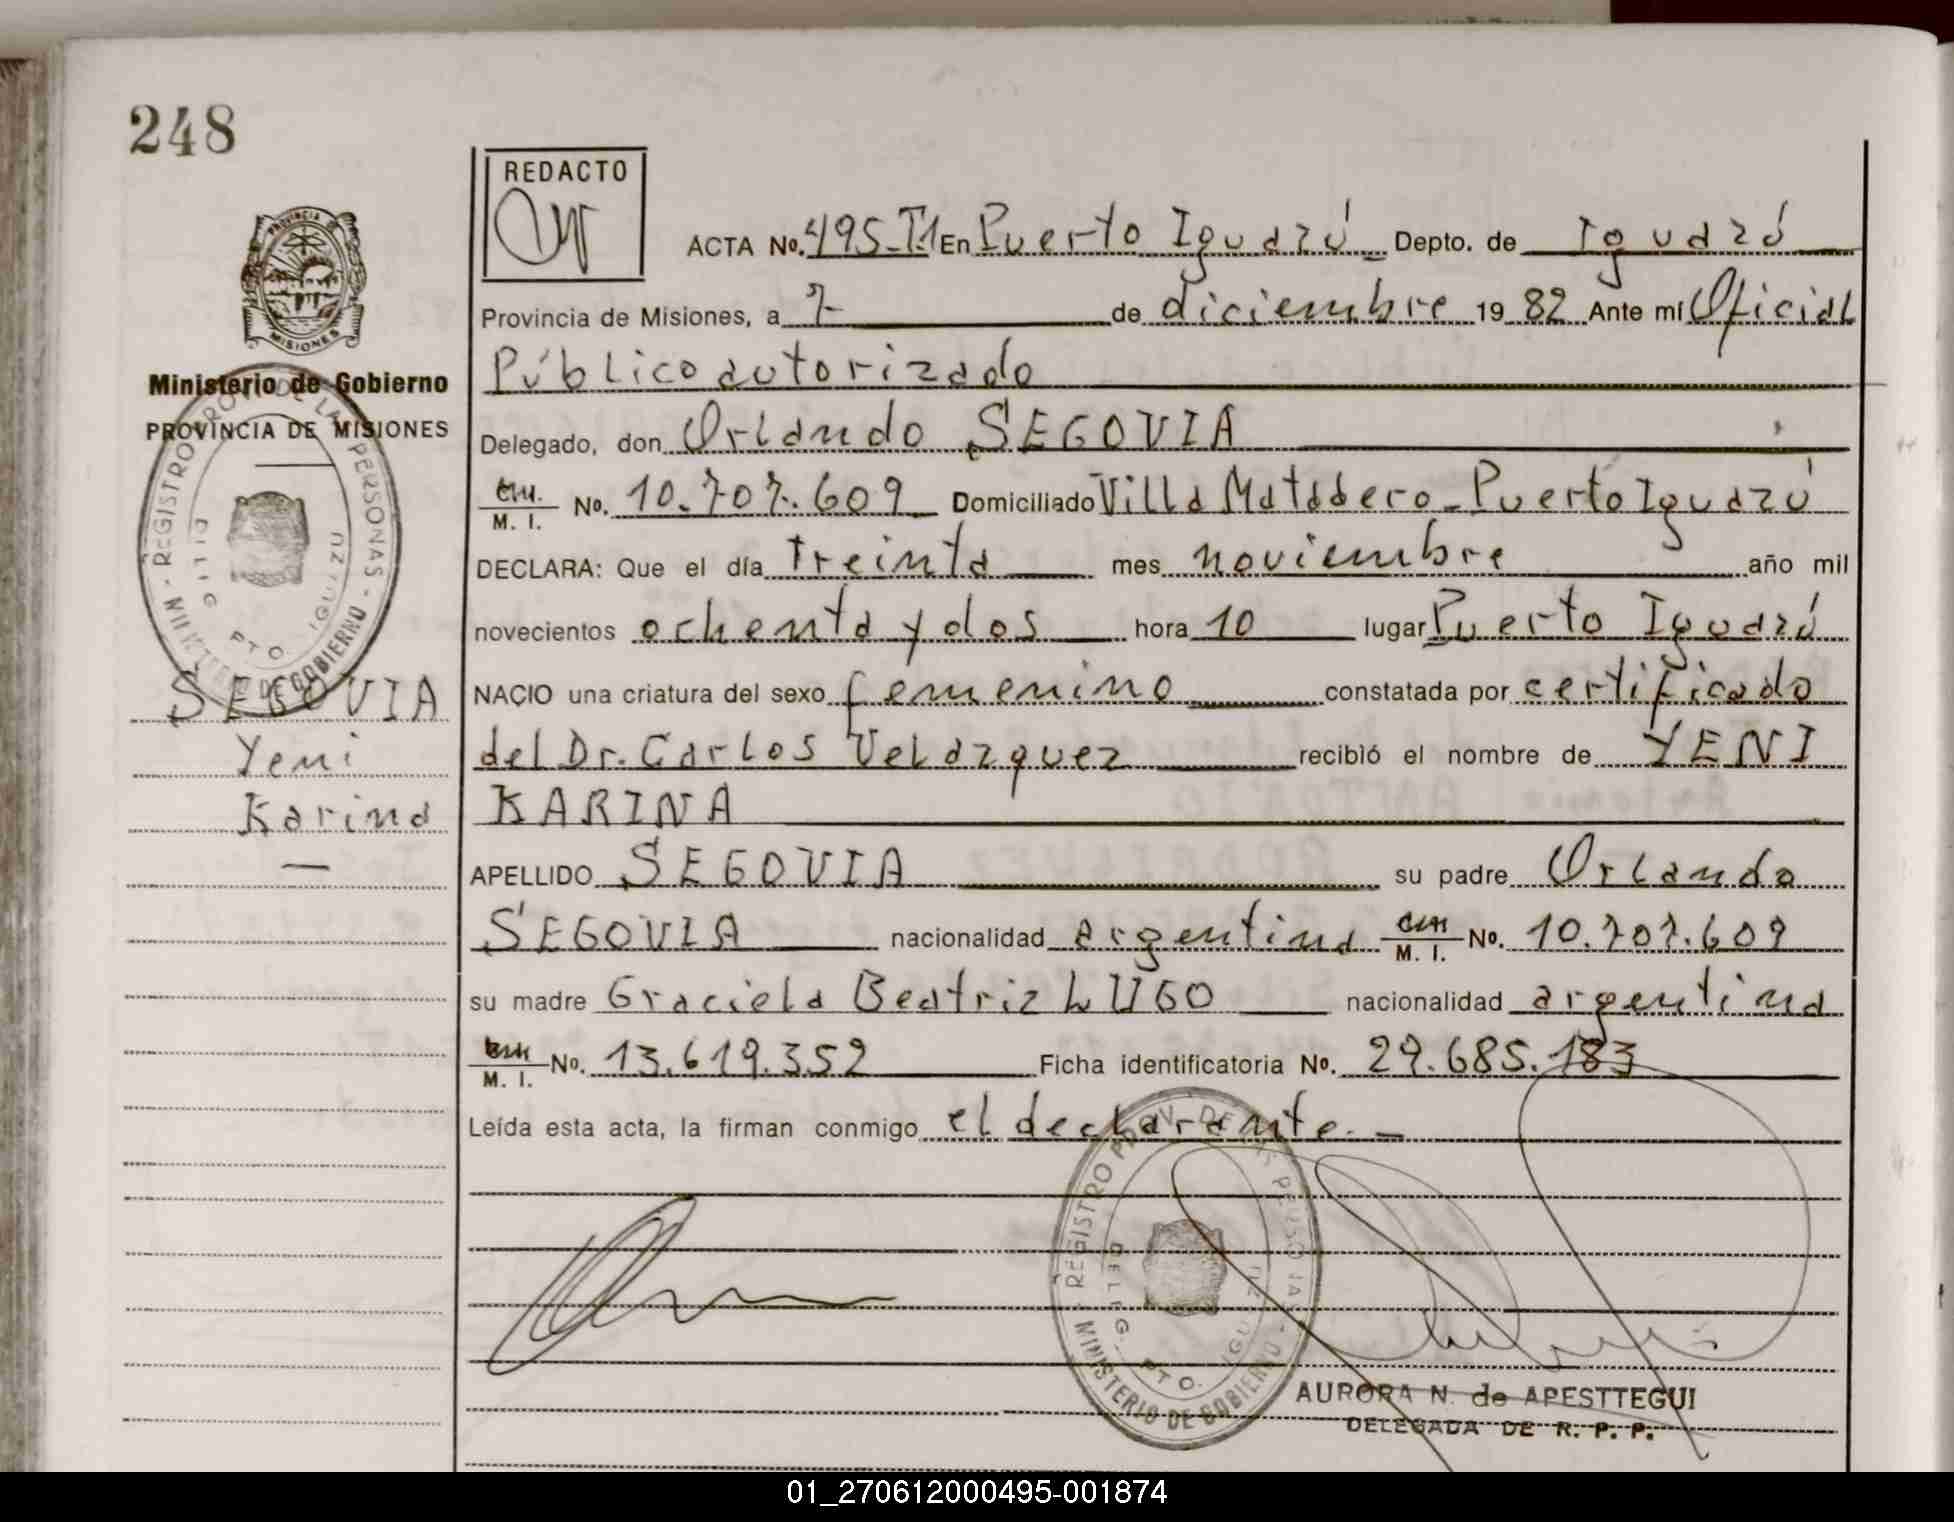 248
REDACTO
PROVINCIA DE
MISIONES
Ministerio de Gobierno
PROVINCIA DE MISIONES
REGISTRO PROV. DE LAS PERSONAS - MINISTERIO DE GOBIERNO -
DELEG. PTO. IGUAZU
SEGOVIA
Yeni
Karina
—
ACTA No. 495-T.1 En Puerto Iguazú Depto. de Iguazú
Provincia de Misiones, a 7 de diciembre 19 82 Ante mí Oficial
Público autorizado
Delegado, don Orlando SEGOVIA
M. I. No. 10.707.609 Domiciliado Villa Matadero - Puerto Iguazú
DECLARA: Que el día treinta mes noviembre año mil
novecientos ochenta y dos hora 10 lugar Puerto Iguazú
NACIO una criatura del sexo femenino constatada por certificado
del Dr. Carlos Velazquez recibió el nombre de YENI
KARINA
APELLIDO SEGOVIA su padre Orlando
SEGOVIA nacionalidad argentina M. I. No. 10.707.609
su madre Graciela Beatriz LUGO nacionalidad argentina
M. I. No. 13.619.352 Ficha identificatoria No. 29.685.183
Leída esta acta, la firman conmigo el declarante. -
REGISTRO PROV. DE LAS PERSONAS - MINISTERIO DE GOBIERNO -
DELEG. PTO. IGUAZU
AURORA N. de APESTTEGUI
DELEGADA DE R. P. P.
01_270612000495-001874